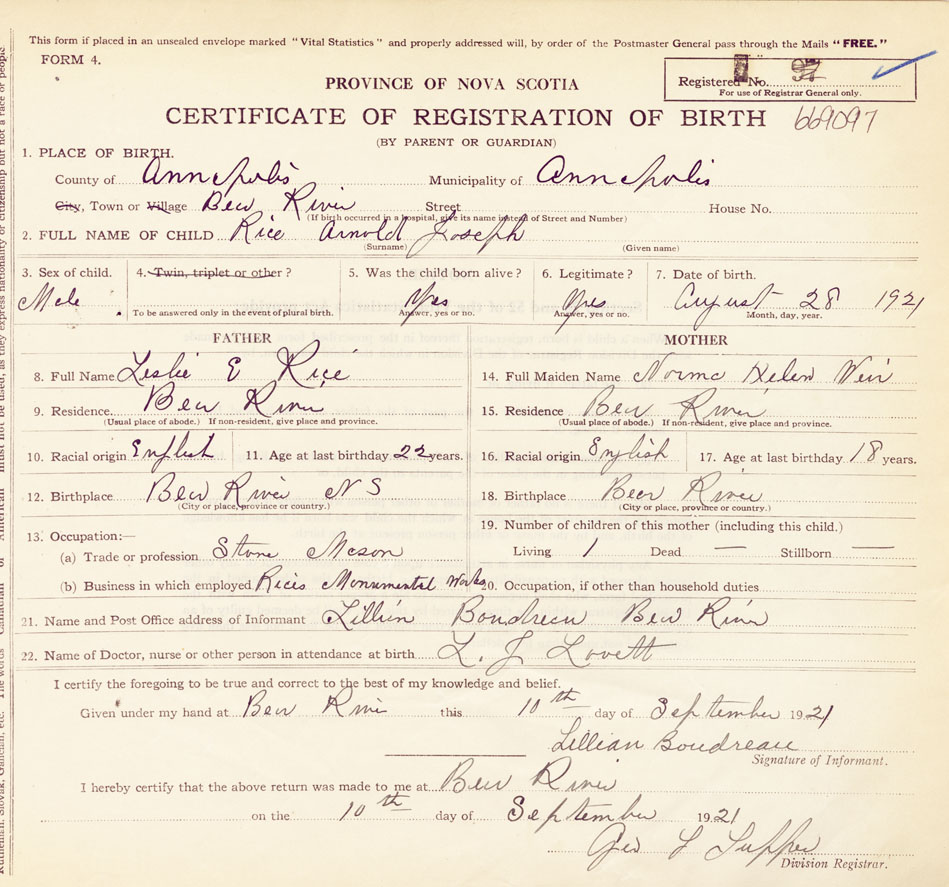 This form if placed in an unsealed envelope marked "Vital Statistics" and properly addressed will, by order of the Postmaster General pass through the Mails "FREE."
FORM 4.
Registered No. 97
For use of Registrar General only.
PROVINCE OF NOVA SCOTIA
CERTIFICATE OF REGISTRATION OF BIRTH 669097
(BY PARENT OR GUARDIAN)
1. PLACE OF BIRTH.
County of Annapolis Municipality of Annapolis
City, Town or Village Bear River Street House No.
(If birth occurred in a hospital, give its name instead of Street and Number)
2. FULL NAME OF CHILD Rice Arnold Joseph
(Surname) (Given name)
3. Sex of child. 4. Twin, triplet or other? 5. Was the child born alive? 6. Legitimate? 7. Date of birth.
Male Yes Yes August 28 1921
To be answered only in the event of plural birth. Answer, yes or no. Answer, yes or no. Month, day, year.
FATHER MOTHER
8. Full Name Leslie E Rice 14. Full Maiden Name Norma Helen Weir
9. Residence. Bear River 15. Residence Bear River
(Usual place of abode.) If non-resident, give place and province. (Usual place of abode.) If non-resident, give place and province.
10. Racial origin English 11. Age at last birthday 22 years. 16. Racial origin English 17. Age at last birthday 18 years.
12. Birthplace Bear River N S 18. Birthplace Bear River
(City or place, province or country.) (City or place, province or country.)
13. Occupation:— 19. Number of children of this mother (including this child.)
(a) Trade or profession Stone Mason Living 1 Dead — Stillborn —
(b) Business in which employed Rices Monumental Works 20. Occupation, if other than household duties
21. Name and Post Office address of Informant Lillian Boudreau Bear River
22. Name of Doctor, nurse or other person in attendance at birth L. J. Lovett
I certify the foregoing to be true and correct to the best of my knowledge and belief.
Given under my hand at Bear River this 10th day of September 1921
Lillian Boudreau
Signature of Informant.
I hereby certify that the above return was made to me at Bear River
on the 10th day of September 1921
Geo L Tupper
Division Registrar.